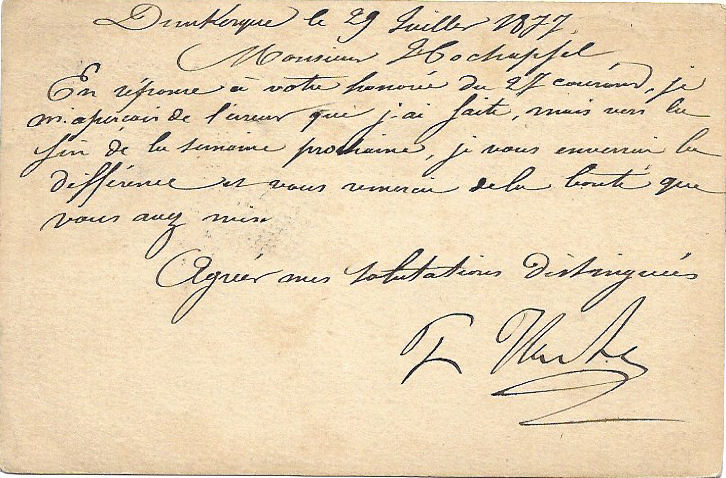 Dunkerque le 29 Juillet 1877
Monsieur Hochapfel
En réponse à votre honoré du 27 courant, je
m'aperçois de l'ereur que j'ai faite, mais vers la
fin de la semaine prochaine, je vous enverrai la
différence et vous remercie de la bonté que
vous avez mise
Agréer mes salutations distinguées